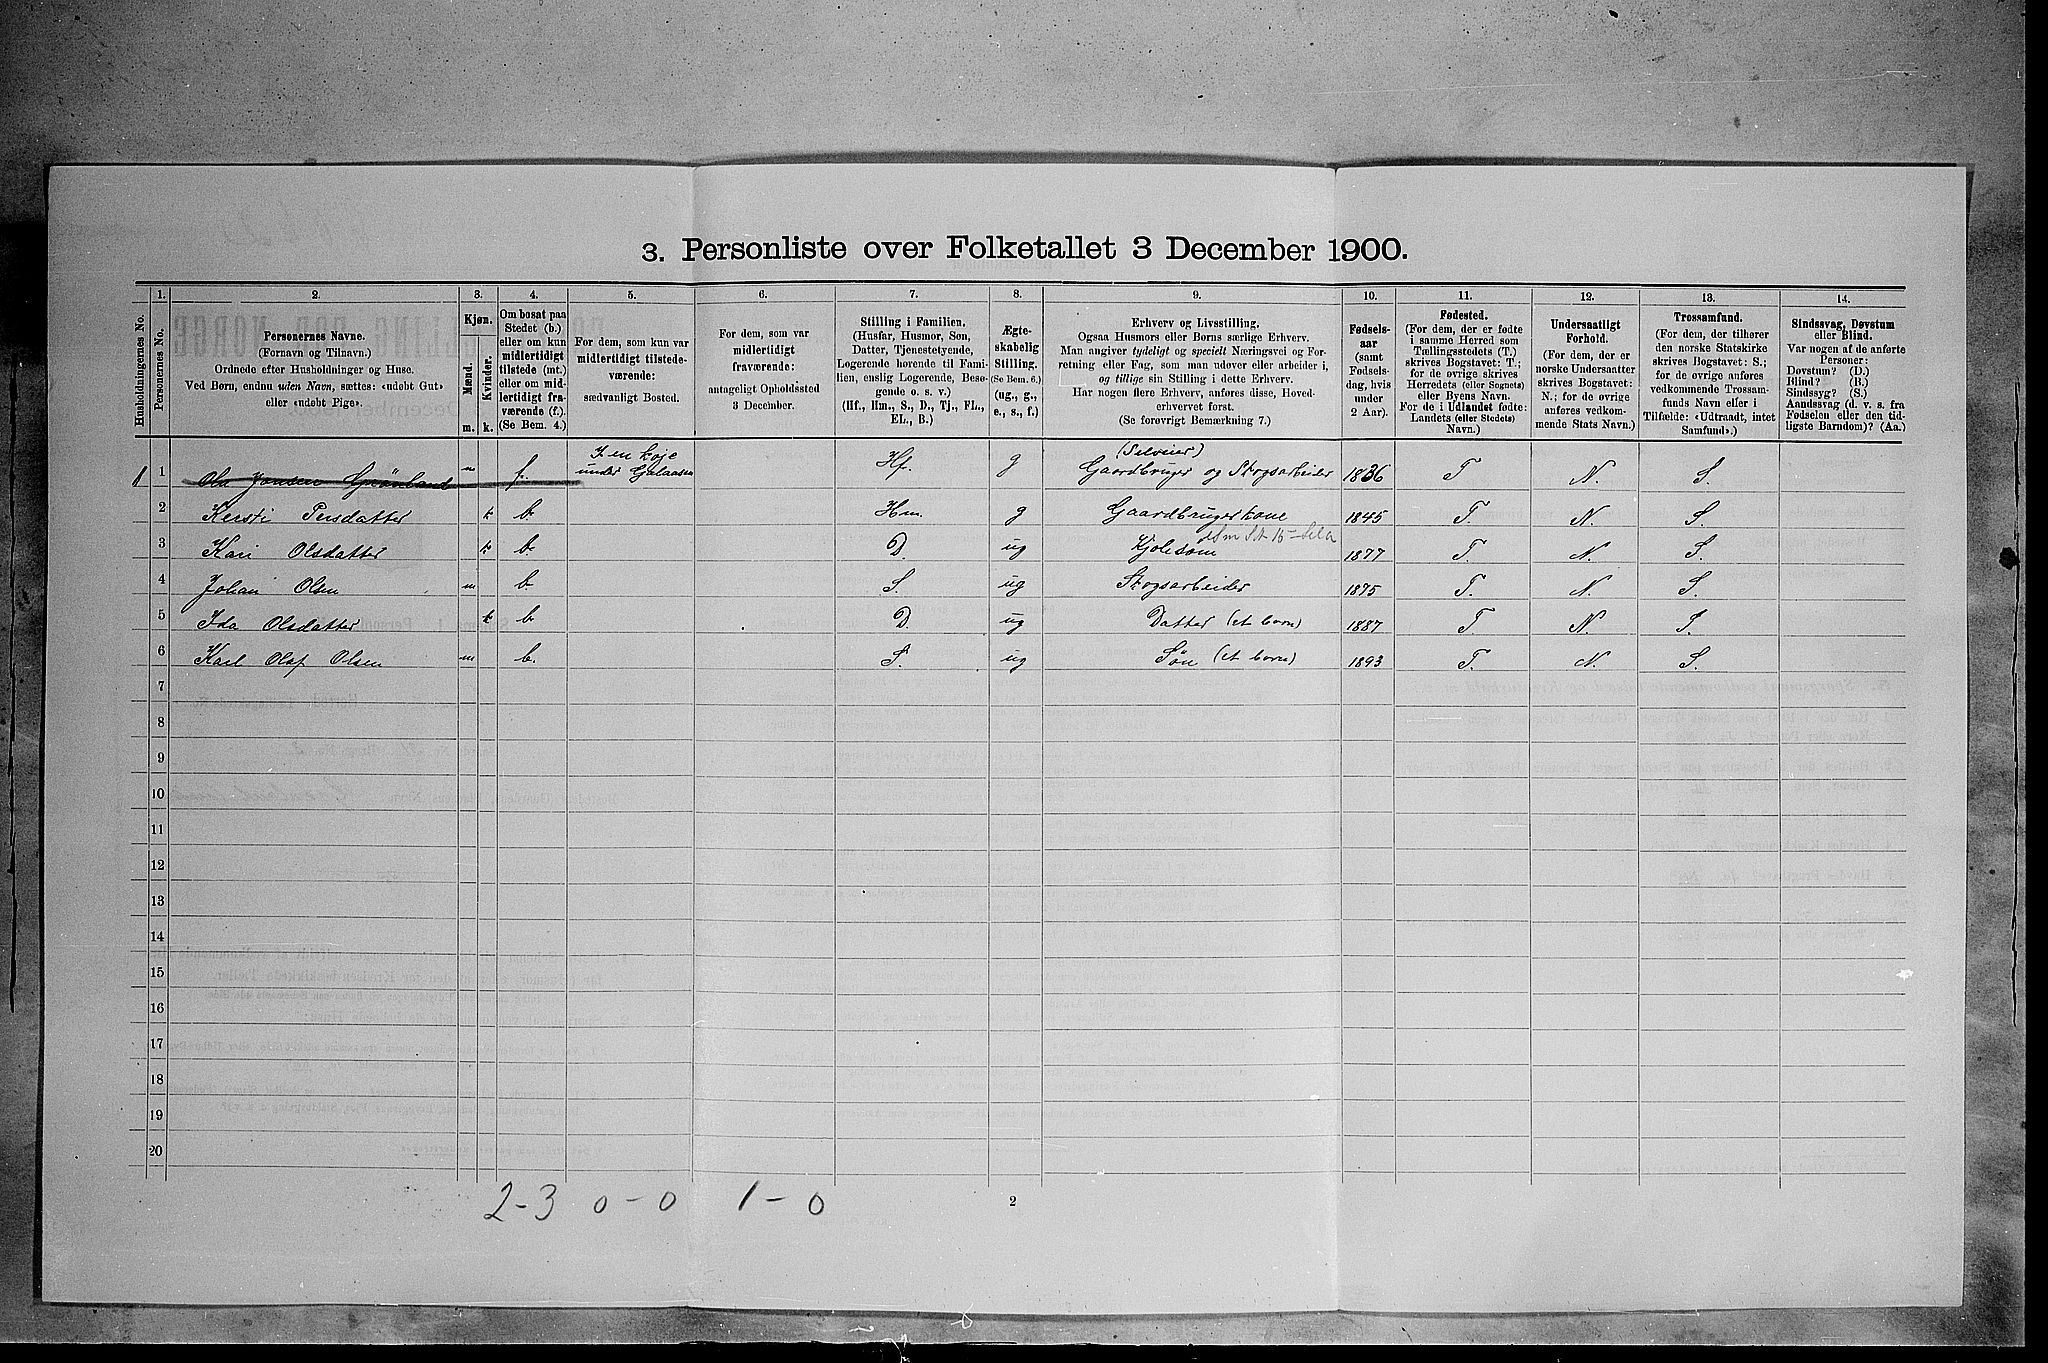 3. Personliste over Folketallet 3 December 1900.
Husholdningernes No.
1.
Personernes No.
2.
Personernes Navne.
(Fornavn og Tilnavn.)
Ordnede efter Husholdninger og Huse.
Ved Børn, endnu uden Navn, sættes: «udøbt Gut»
eller «udøbt Pige».
3.
Kjøn.
Mænd.
Kvinder.
m.
k.
4.
Om bosat paa
Stedet (b.)
eller om kun
midlertidigt
tilstede (mt.)
eller om mid-
lertidigt fra-
værende (f.).
(Se Bem. 4.)
5.
For dem, som kun var
midlertidigt tilstede-
værende:
sædvanligt Bosted.
6.
For dem, som var
midlertidigt
fraværende:
antageligt Opholdssted
3 December.
7.
Stilling i Familien.
(Husfar, Husmor, Søn,
Datter, Tjenestetyende,
Logerende hørende til Fami-
lien, enslig Logerende, Besø-
gende o. s. v.)
(Hf., Hm., S., D., Tj., FL.,
EL., B.)
8.
Ægte-
skabelig
Stilling.
(Se Bem. 6.)
(ug., g.,
e., s., f.)
9.
Erhverv og Livsstilling.
Ogsaa Husmors eller Børns særlige Erhverv.
Man angiver tydeligt og specielt Næringsvei og For-
retning eller Fag, som man udøver eller arbeider i,
og tillige sin Stilling i dette Erhverv.
Har nogen flere Erhverv, anføres disse, Hoved-
erhvervet først.
(Se forøvrigt Bemærkning 7.)
10.
Fødsels-
aar
(samt
Fødsels-
dag, hvis
under
2 Aar).
11.
Fødested.
(For dem, der er fødte
i samme Herred som
Tællingsstedets (T.)
skrives Bogstavet: T.;
for de øvrige skrives
Herredets (eller Sognets)
eller Byens Navn.
For de i Udlandet fødte:
Landets (eller Stedets)
Navn.)
12.
Undersaatligt
Forhold.
(For dem, der er
norske Undersaatter
skrives Bogstavet:
N.; for de øvrige
anføres vedkom-
mende Stats Navn.)
13.
Trossamfund.
(For dem, der tilhører
den norske Statskirke
skrives Bogstavet: S.;
for de øvrige anføres
vedkommende Trossam-
funds Navn eller i
Tilfælde: «Udtraadt, intet
Samfund».)
14.
Sindssvag, Døvstum
eller Blind.
Var nogen af de anførte
Personer:
Døvstum? (D.)
Blind? (B.)
Sindssyg? (S.)
Aandssvag (d. v. s. fra
Fødselen eller den tid-
ligste Barndom)? (Aa.)
1 1 Ola Jonsen Grønland m f. I en koje under Galaasen Hf. g (Selveier) Gaardbruger og Skogsarbeider 1836 T N. S.
2 Kersti Persdatter k b. Hm. g Gaardbrugerkone 1845 T. N. S.
3 Kari Olsdatter k b. D. ug Kjolesøm 1877 T. N. S.
4 Johan Olsen m b. S. ug Skogsarbeider 1875 T. N. S.
5 Ida Olsdatter k b. D. ug Datter (et barn) 1887 T N. S.
6 Karl Olof Olsen m b. S. ug Søn (et barn) 1893 T. N. S.
7
8
9
10
11
12
13
14
15
16
17
18
19
20
2-3 0-0 1-0
2